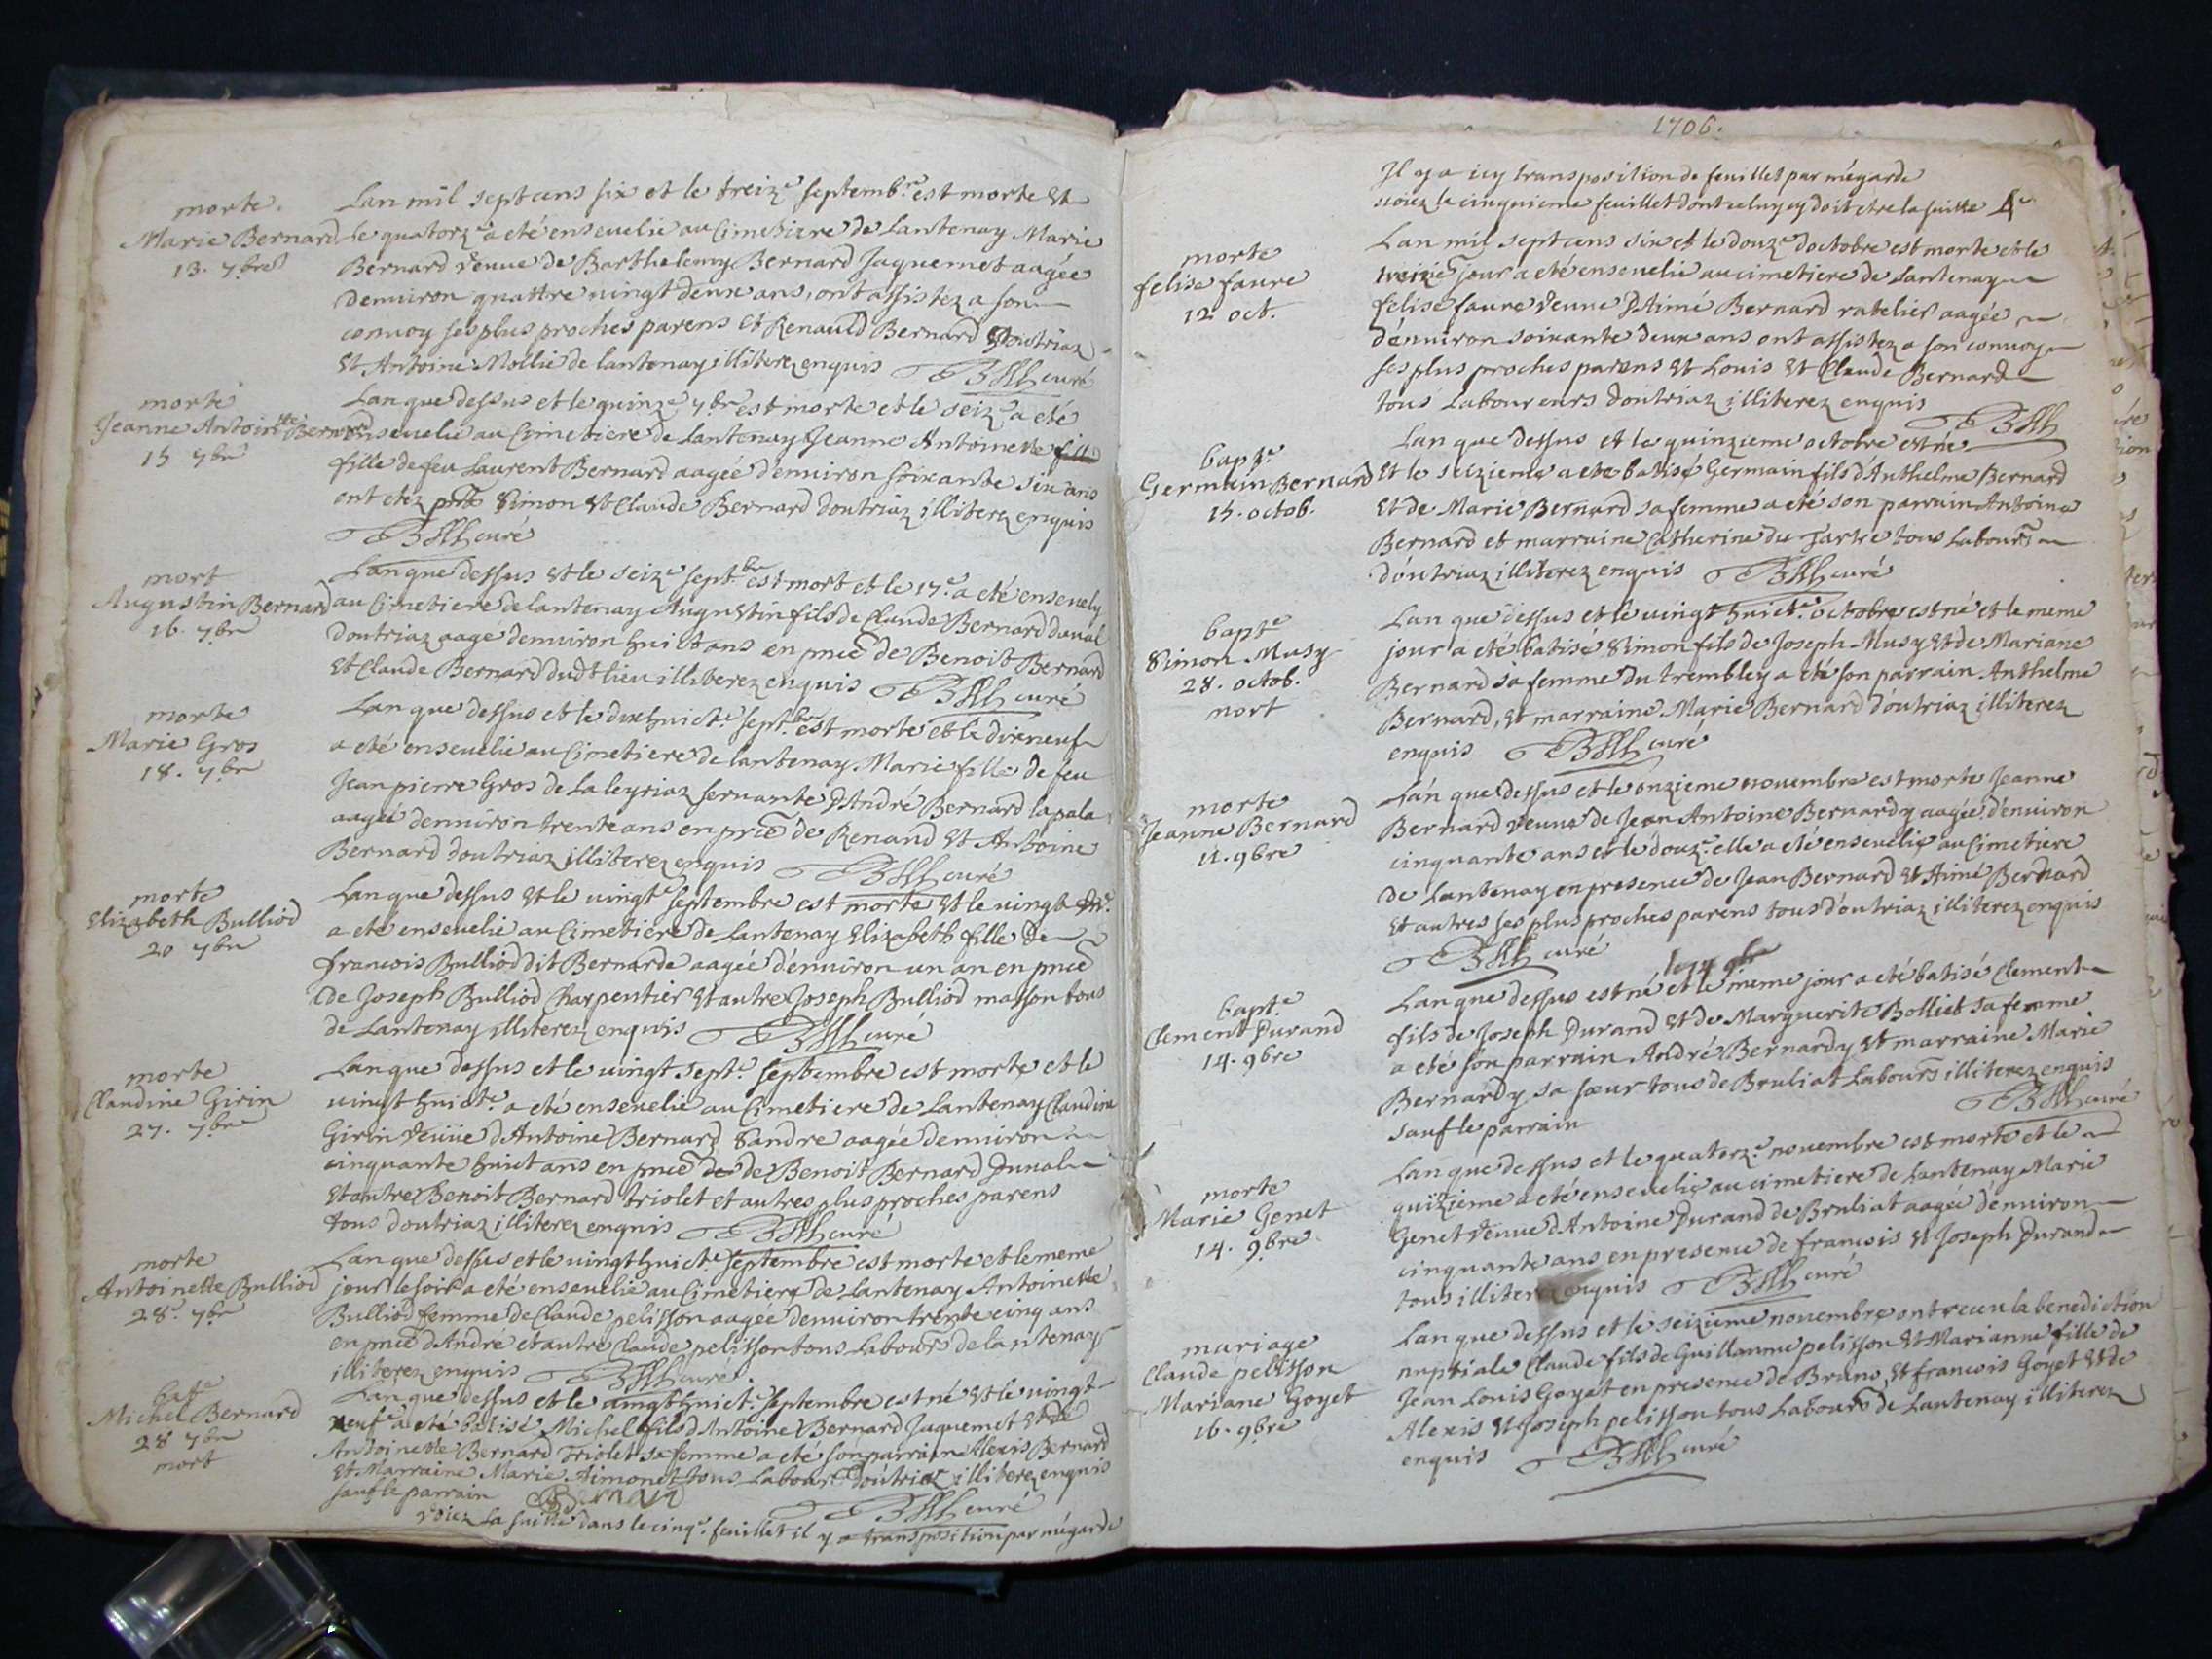 morte.
Marie Bernard
13. 7bre
Lan mil sept cens six et le treize septembre est morte Et
le quatorze a eté enseuelie au Cimetiere de Lantenay Marie
Bernard veuue de Barthelemy Bernard Jaquemet aagée
denuiron quattre uingt deux ans, ont assistez a son
conuoy ses plus proches parens et Renauld Bernard Doutriaz
Et Antoine Mollie de lantenay illiterez enquis curé
morte
Jeanne Antoinette Bernard
15 7bre
Lan que dessus et le quinze 7bre est morte et le seize a eté
enseuelie au Cimetiere de Lantenay Jeanne Antoinette
fille de feu Laurent Bernard aagée denuiron soixante six ans
ont etez pnts Simon Et Claude Bernard doutriaz illiterez enquis
curé
mort
Augustin Bernard
16. 7bre
Lan que dessus Et le seize septbre est mort et le 17e a eté enseuely
au Cimetiere de lantenay Augustin fils de Claude Bernard dunal
doutriaz aagé denuiron huict ans en pnce de Benoit Bernard
Et Claude Bernard dudt lieu illiterez enquis curé
morte
Marie Gros
18. 7bre
Lan que dessus et le dixhuicte septbre est morte et le dixneuf
a eté enseuelie au Cimetiere de lantenay Marie fille de feu
Jean pierre Gros de La leyriaz seruante D'André Bernard lapala
aagée denuiron trente ans en pnce de Renaud Et Antoine
Bernard doutriaz illiterez enquis curé
morte
Elizabeth Bulliod
20 7bre
Lan que dessus Et le uingte septembre est morte Et le uingt
a eté enseuelie au Cimetiere de Lantenay Elizabeth fille De
francois Bulliod dit Bernarde aagée d'enuiron un an en pnce
de Joseph Bulliod Charpentier Et autre Joseph Bulliod masson tous
de Lantenay illiterez enquis curé
morte
Claudine Girin
27. 7bre
Lan que dessus et le uingt septe septembre est morte et le
uingt huicte a eté enseuelie au Cimetiere de Lantenay Claudine
Girin veuue d'Antoine Bernard Sandre aagée denuiron
cinquante huict ans en pnce de de Benoit Bernard Dunal
Et autre Benoit Bernard triolet et autres plus proches parens
tous doutriaz illiterez enquis curé
morte
Antoinette Bulliod
28. 7bre
Lan que dessus et le uingt huicte septembre est morte et le meme
jour le soir a eté enseuelie au Cimetiere de Lantenay Antoinette
Bulliod femme de Claude pelisson aagée denuiron trente cinq ans
en pnce d'André et autre Claude pelisson tous Labours de lantenay
illiterez enquis curé
bate
Michel Bernard
28 7bre
mort
Lan que dessus et le uingt huicte septembre est né Et le uingt
neufe a eté batisé Michel fils d'Antoine Bernard Jaquemet Et de
Antoinette Bernard Triolet sa femme a eté son parrain Alexis Bernard
Et Marraine Marie Aimonet tous Labours doutriaz illiterez enquis
sauf le parrain curé
voiez La suitte dans le cinqe feuillet il y a transposition par mégarde
1706.
Il y a icy transposition de feuillet par mégarde
uoiez le cinquieme feuillet dont celuy cy doit etre la suitte 4e
morte
felise faure
12 oct.
Lan mil sept cens six et le douze doctobre est morte et le
treizie jour a eté enseuelie au cimetiere de Lantenay
felise faure veuue D'Aimé Bernard ratelier aagée
d'enuiron soixante deux ans ont assistez a son conuoy
ses plus proches parens Et Louis Et Claude Bernard
tous Laboureurs Doutriaz illiterez enquis
bapte
Germain Bernard
15. octob.
Lan que dessus et le quinzieme octobre est né
Et le seizieme a eté batisé Germain fils d'Anthelme Bernard
Et de Marie Bernard sa femme a eté son parrain Antoine
Bernard et marraine Catherine du Tartre tous Labours
d'outriaz illiterez enquis curé
bapte
Simon Musy
28. octob.
mort
Lan que dessus et le uingt huicte octobre est né et le meme
jour a eté batisé Simon fils de Joseph Musy Et de Mariane
Bernard sa femme Du trembley a eté son parrain Anthelme
Bernard, Et marraine Marie Bernard d'outriaz illiterez
enquis curé
morte
Jeanne Bernard
11. 9bre
Lan que dessus et le onzieme nouembre est morte Jeanne
Bernard veuue de Jean Antoine Bernardy aagée d'enuiron
cinquante ans et le douze elle a eté enseuelie au Cimetiere
de Lantenay en presence de Jean Bernard Et Aimé Bernard
Et autres ses plus proches parens tous d'outriaz illiterez enquis
curé
bapte
Clement Durand
14. 9bre
le 14 9bre
Lan que dessus est né et le meme jour a eté batisé Clement
fils de Joseph Durand Et de Marguerite Bolliet sa femme
a eté son parrain André Bernardy Et marraine Marie
Bernardy sa sœur tous de Bruliat Labours illiterez enquis
sauf le parrain curé
morte
Marie Genet
14. 9bre
Lan que dessus et le quatorze nouembre est morte et le
quizieme a eté enseuelie au cimetiere de Lantenay Marie
Genet veuue d'Antoine Durand de Bruliat aagée d'enuiron
cinquante ans en presence de francois Et Joseph Durand
tous illiterez enquis curé
mariage
Claude pelisson
Mariane Goyet
16. 9bre
Lan que dessus et le seizieme nouembre ont receu la benediction
nuptiale Claude fils de Guillaume pelisson Et Marianne fille de
Jean Louis Goyet en presence de Bruno, Et francois Goyet Et de
Alexis Et Joseph pelisson tous Labours de Lantenay illiterez
enquis curé